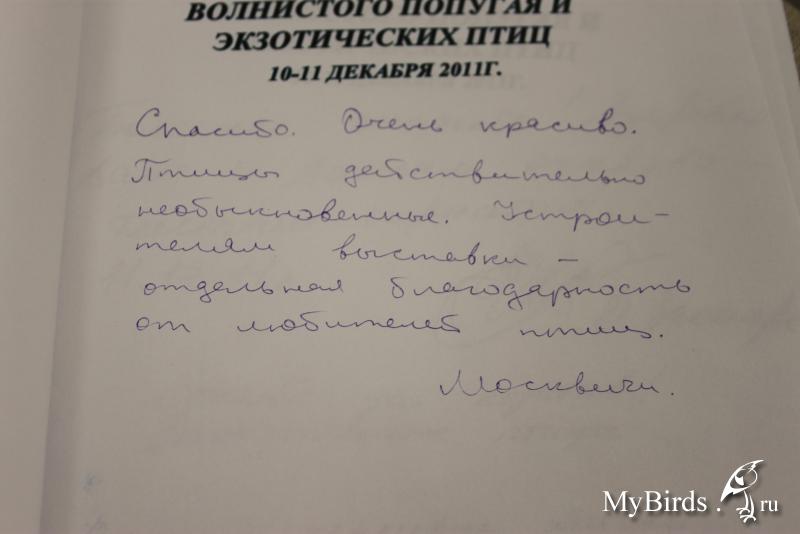 ВОЛНИСТОГО ПОПУГАЯ И
ЭКЗОТИЧЕСКИХ ПТИЦ
10-11 ДЕКАБРЯ 2011Г.
Спасибо. Очень красиво.
Птицы действительно
необыкновенные. Устрои-
телям выставки –
отдельная благодарность
от любителей птиц.
Москвичи.
MyBirds.ru